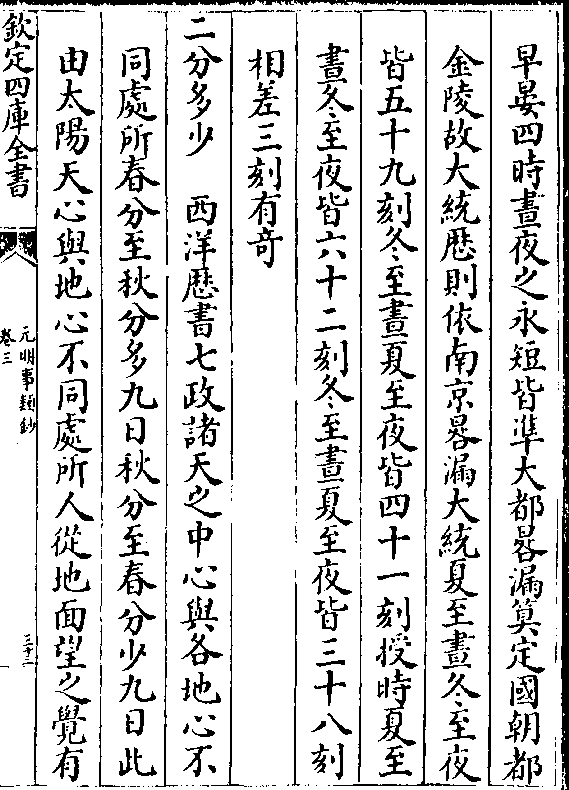 早晏四時晝夜之永短皆準大都晷漏算定國朝都
金陵故大統歴則依南京晷漏大統夏至晝冬至夜
皆五十九刻冬至晝夏至夜皆四十一刻授時夏至
晝冬至夜皆六十二刻冬至晝夏至夜皆三十八刻
相差三刻有奇
二分多少 西洋歴書七政諸天之中心與各地心不
同處所春分至秋分多九日秋分至春分少九日此
由太陽天心與地心不同處所人從地面望之覺有
欽定四庫全書
元明事類鈔
卷三
三十二